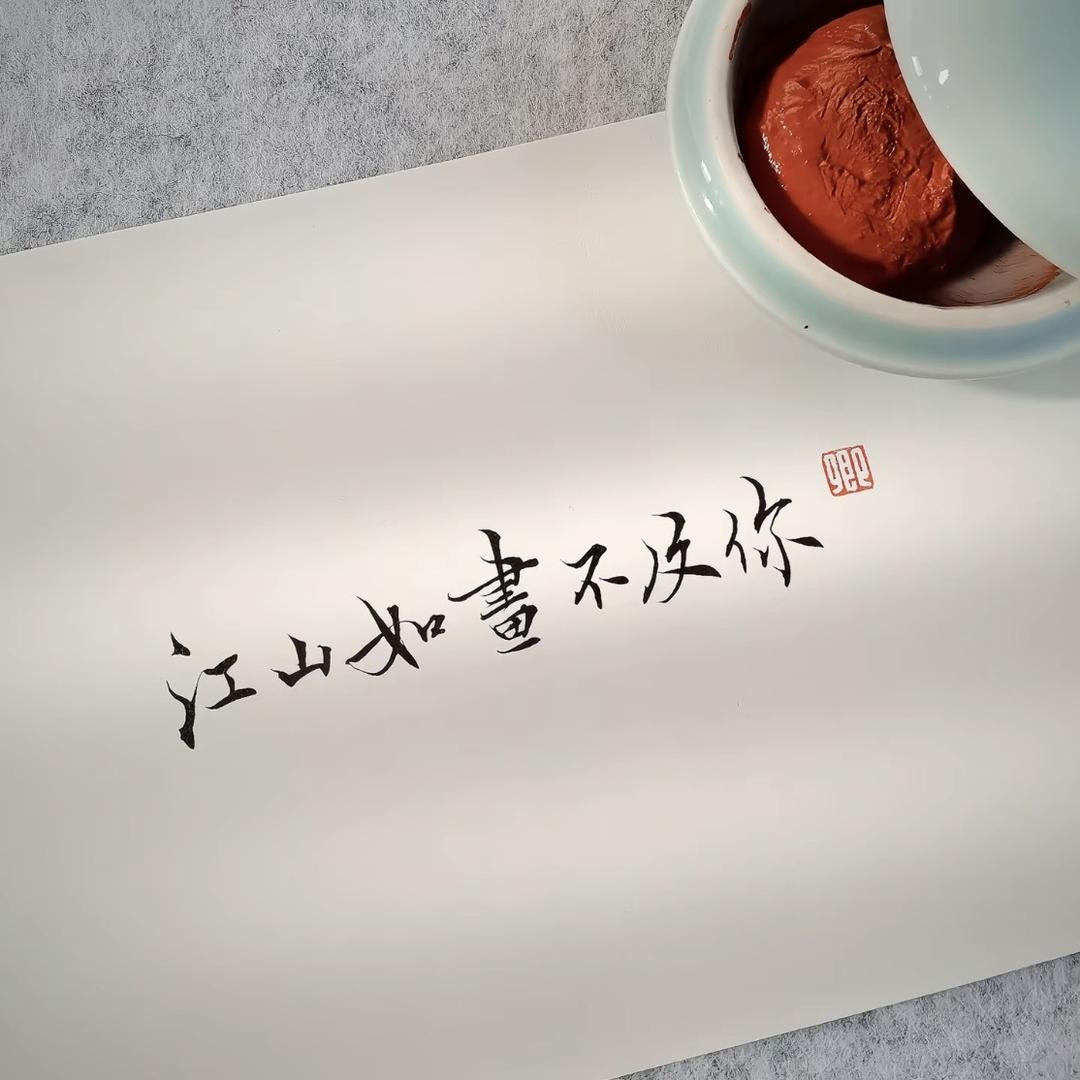 江山如畫不及你